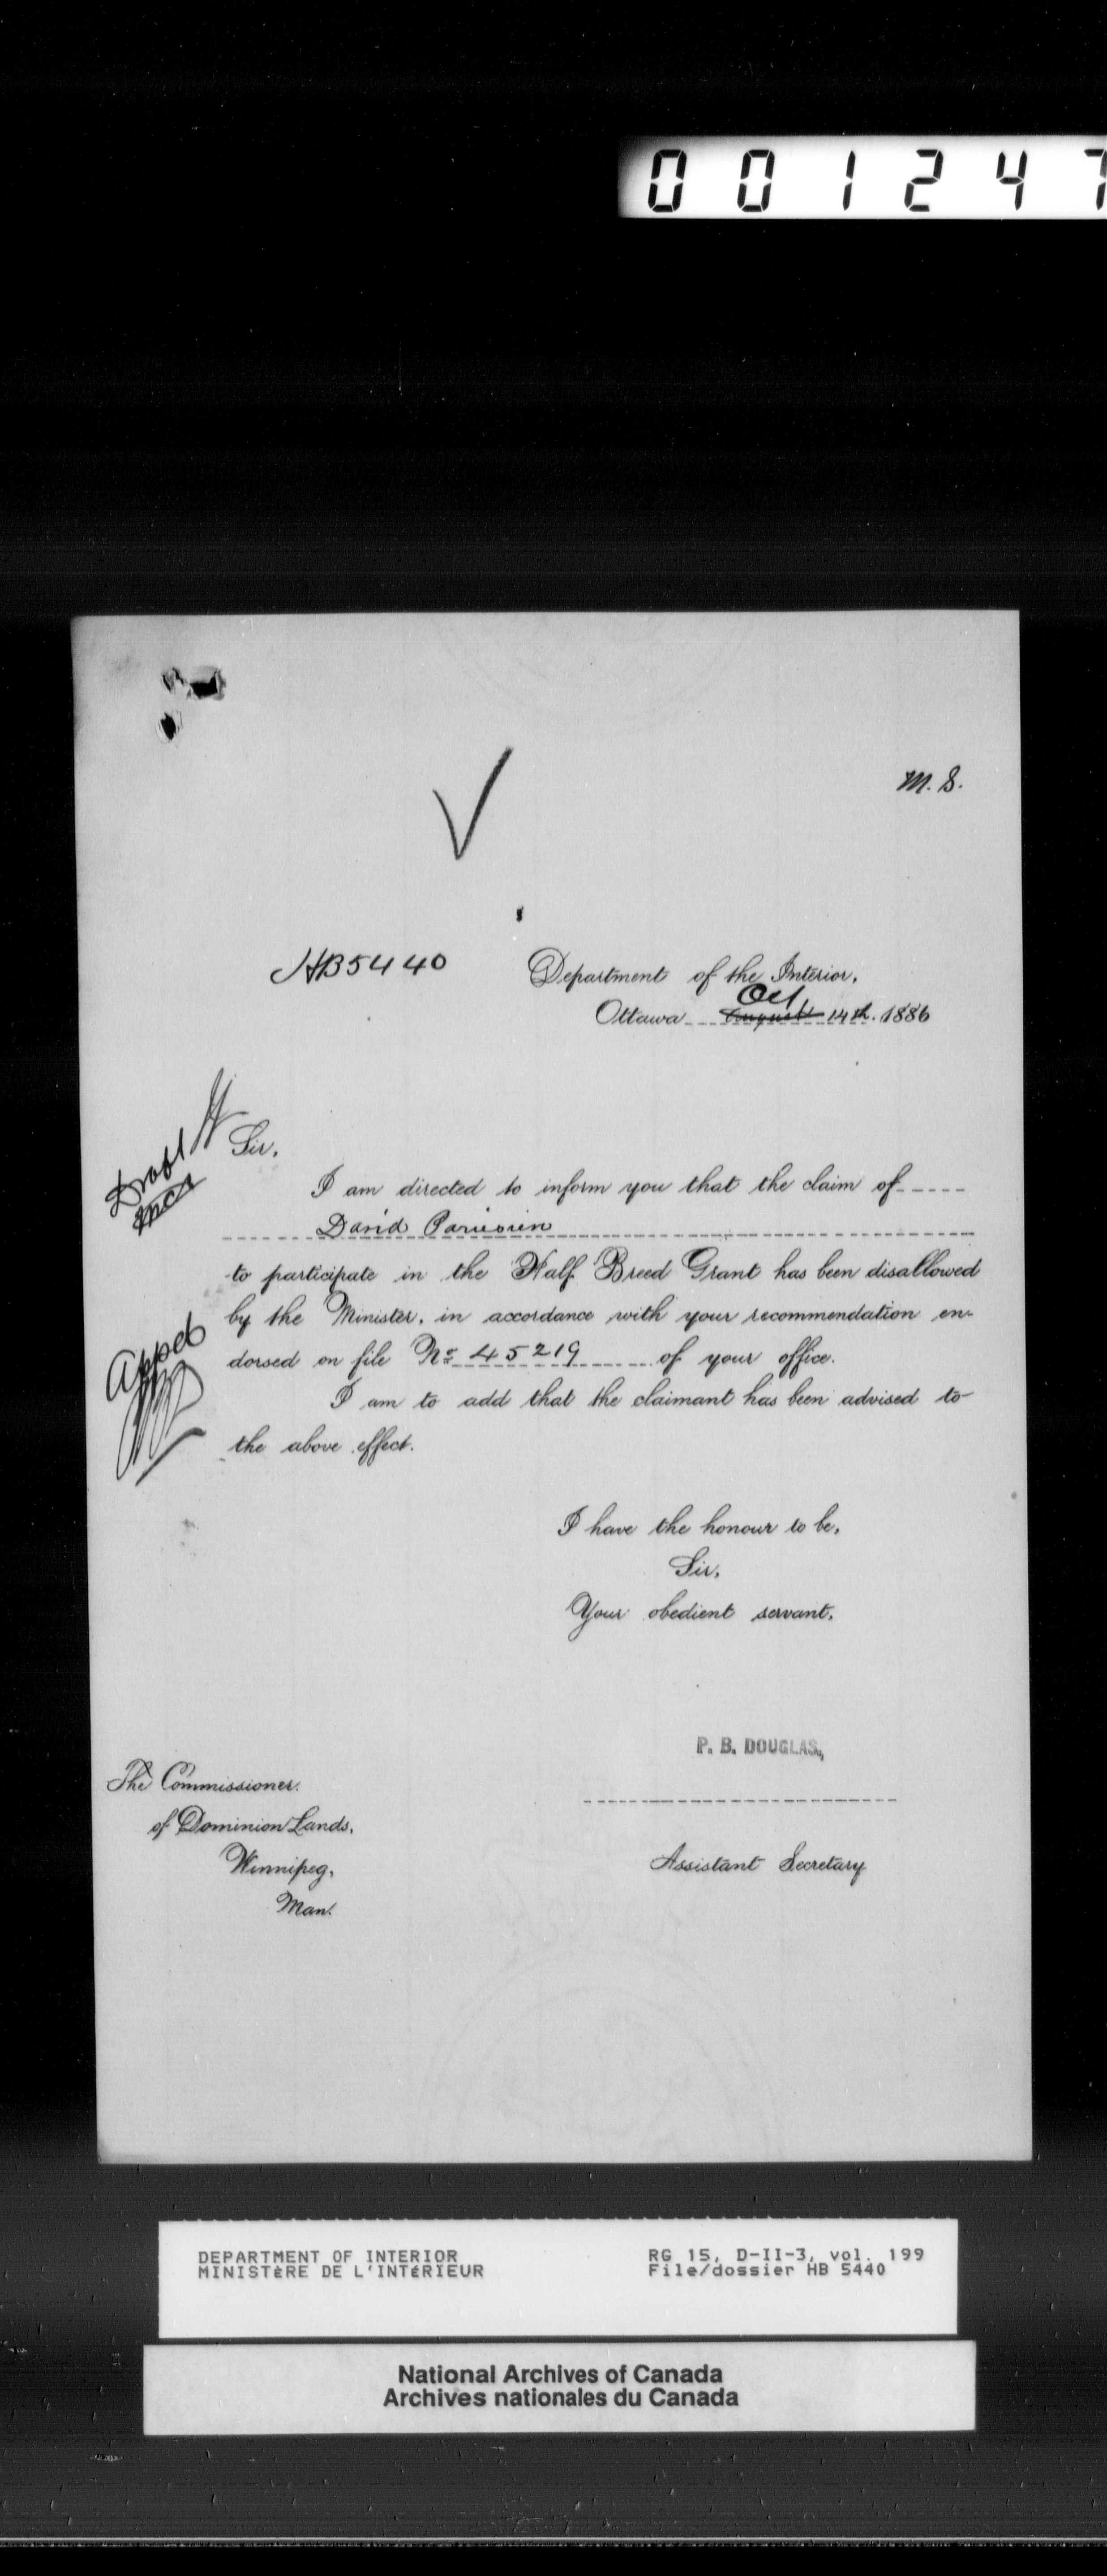 001247
M. S.
HB5440
Department of the Interior,
Oct
Ottawa August 14th. 1886
Draft
Sir,
I am directed to inform you that the claim of
David Parisien
to participate in the Half Breed Grant has been disallowed
by the Minister, in accordance with your recommendation en-
dorsed on file No. 45219 of your office.
I am to add that the claimant has been advised to
the above effect.
I have the honour to be,
Sir,
Your obedient servant,
P. B. DOUGLAS,
Assistant Secretary
The Commissioner
of Dominion Lands,
Winnipeg,
Man.
DEPARTMENT OF INTERIOR
MINISTÈRE DE L'INTÉRIEUR
RG 15, D-II-3, vol. 199
File/dossier HB 5440
National Archives of Canada
Archives nationales du Canada